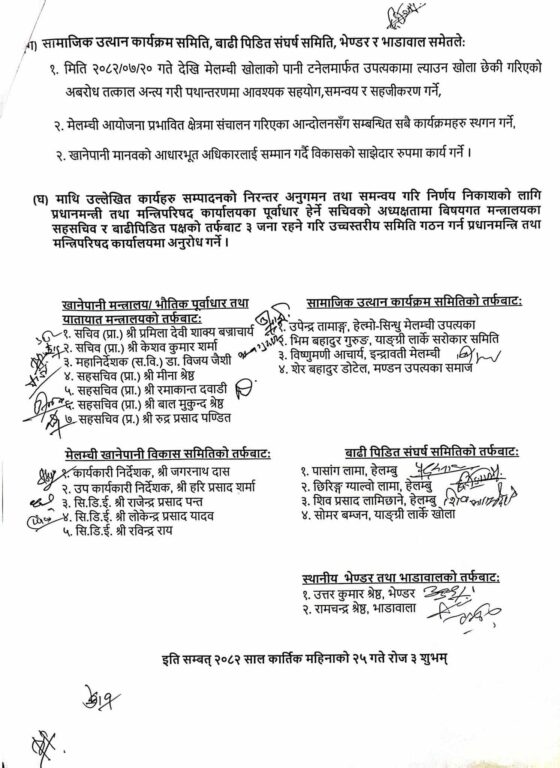 ग) सामाजिक उत्थान कार्यक्रम समिति, बाढी पिडित संघर्ष समिति, भेण्डर र भाडावाल समेतले:
१. मिति २०८२/०७/२० गते देखि मेलम्ची खोलाको पानी टनेलमार्फत उपत्यकामा ल्याउन खोला छेकी गरिएको
अबरोध तत्काल अन्त्य गरी पथान्तरणमा आवश्यक सहयोग,समन्वय र सहजीकरण गर्ने,
२. मेलम्ची आयोजना प्रभावित क्षेत्रमा संचालन गरिएका आन्दोलनसँग सम्बन्धित सबै कार्यक्रमहरु स्थगन गर्ने,
२. खानेपानी मानवको आधारभूत अधिकारलाई सम्मान गर्दै विकासको साझेदार रुपमा कार्य गर्ने ।
(घ) माथि उल्लेखित कार्यहरु सम्पादनको निरन्तर अनुगमन तथा समन्वय गरि निर्णय निकाशको लागि
प्रधानमन्त्री तथा मन्त्रिपरिषद कार्यालयका पूर्वाधार हेर्ने सचिवको अध्यक्षतामा बिषयगत मन्त्रालयका
सहसचिव र बाढीपिडित पक्षको तर्फबाट ३ जना रहने गरि उच्चस्तरीय समिति गठन गर्न प्रधानमन्त्रि तथा
मन्त्रिपरिषद कार्यालयमा अनुरोध गर्ने ।
खानेपानी मन्त्रालय/ भौतिक पूर्वाधार तथा
यातायात मन्त्रालयको तर्फबाट:
१. सचिव (प्रा.) श्री प्रमिला देवी शाक्य बज्राचार्य
२. सचिव (प्रा.) श्री केशव कुमार शर्मा
३. महानिर्देशक (स.वि.) डा. विजय जैशी
४. सहसचिव (प्रा.) श्री मीना श्रेष्ठ
५. सहसचिव (प्रा.) श्री रमाकान्त दवाडी
६. सहसचिव (प्रा.) श्री बाल मुकुन्द श्रेष्ठ
७ सहसचिव (प्र.) श्री रुद्र प्रसाद पण्डित
सामाजिक उत्थान कार्यक्रम समितिको तर्फबाट:
१. उपेन्द्र तामाङ्ग, हेल्मो-सिन्धु मेलम्ची उपत्यका
२. भिम बहादुर गुरुङ, याङ्ग्री लार्के सरोकार समिति
३. विष्णुमणी आचार्य, इन्द्रावती मेलम्ची
४. शेर बहादुर डोटेल, मण्डन उपत्यका समाज
मेलम्ची खानेपानी विकास समितिको तर्फबाट:
१. कार्यकारी निर्देशक, श्री जगरनाथ दास
२. उप कार्यकारी निर्देशक, श्री हरि प्रसाद शर्मा
३. सि.डि.ई. श्री राजेन्द्र प्रसाद पन्त
४. सि.डि.ई. श्री लोकेन्द्र प्रसाद यादव
५. सि.डि.ई. श्री रविन्द्र राय
बाढी पिडित संघर्ष समितिको तर्फबाट:
१. पासांग लामा, हेलम्बु
२. छिरिङ्ग ग्याल्वो लामा, हेलम्बु
३. शिव प्रसाद लामिछाने, हेलम्बु
४. सोमर बम्जन, याङ्ग्री लार्के खोला
स्थानीय भेण्डर तथा भाडावालको तर्फबाट:
१. उत्तर कुमार श्रेष्ठ, भेण्डर
२. रामचन्द्र श्रेष्ठ, भाडावाला
इति सम्बत् २०८२ साल कार्तिक महिनाको २५ गते रोज ३ शुभम्